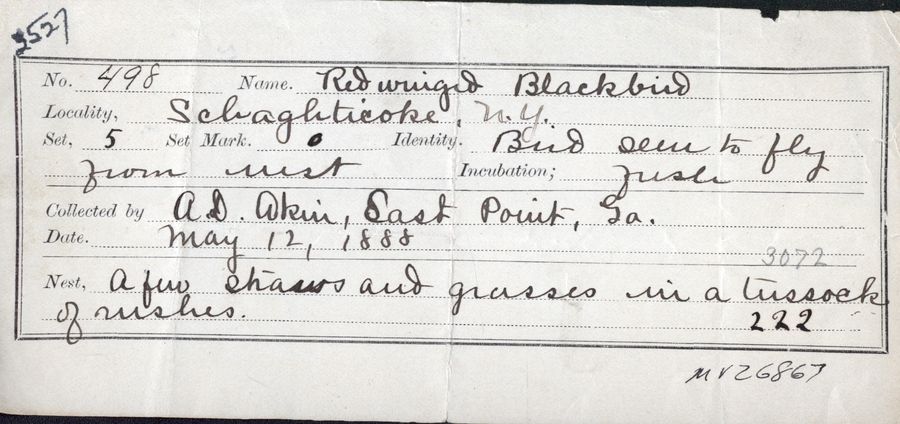 3527
No. 498 Name. Redwinged Blackbird
Locality, Schaghticoke, N.Y.
Set, 5 Set Mark. 0 Identity. Bird seen to fly
from nest Incubation; fresh
Collected by A.D. Akin, East Point, Ga.
Date. May 12, 1888
3072
Nest, A few straws and grasses in a tussock
of rushes.
222
MVZ6867